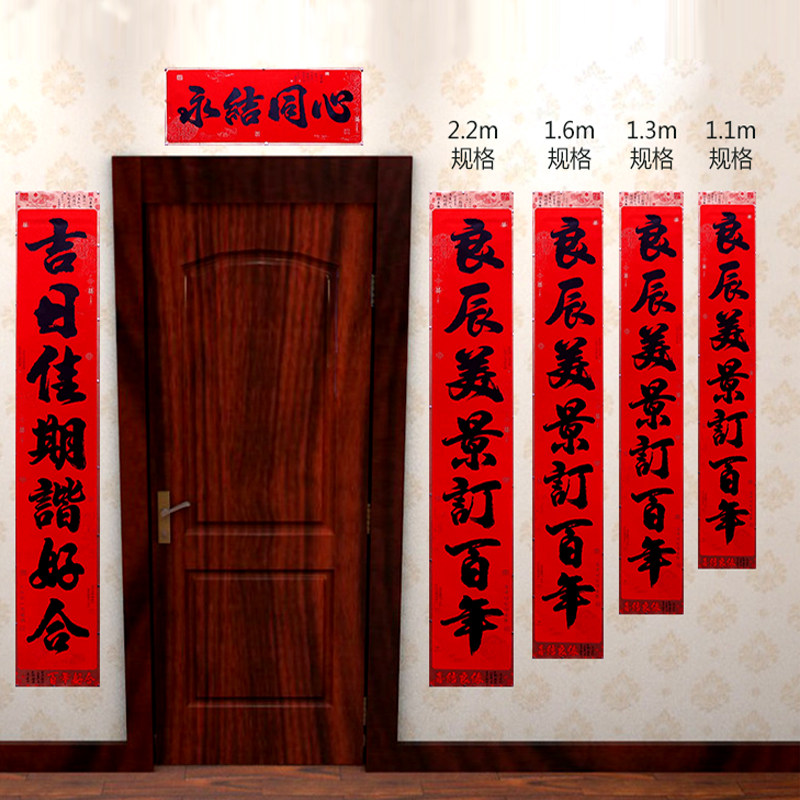 永結同心
吉日佳期諧好合
百年好合
2.2m
规格
良辰美景訂百年
1.6m
规格
良辰美景訂百年
1.3m
规格
良辰美景訂百年
1.1m
规格
良辰美景訂百年